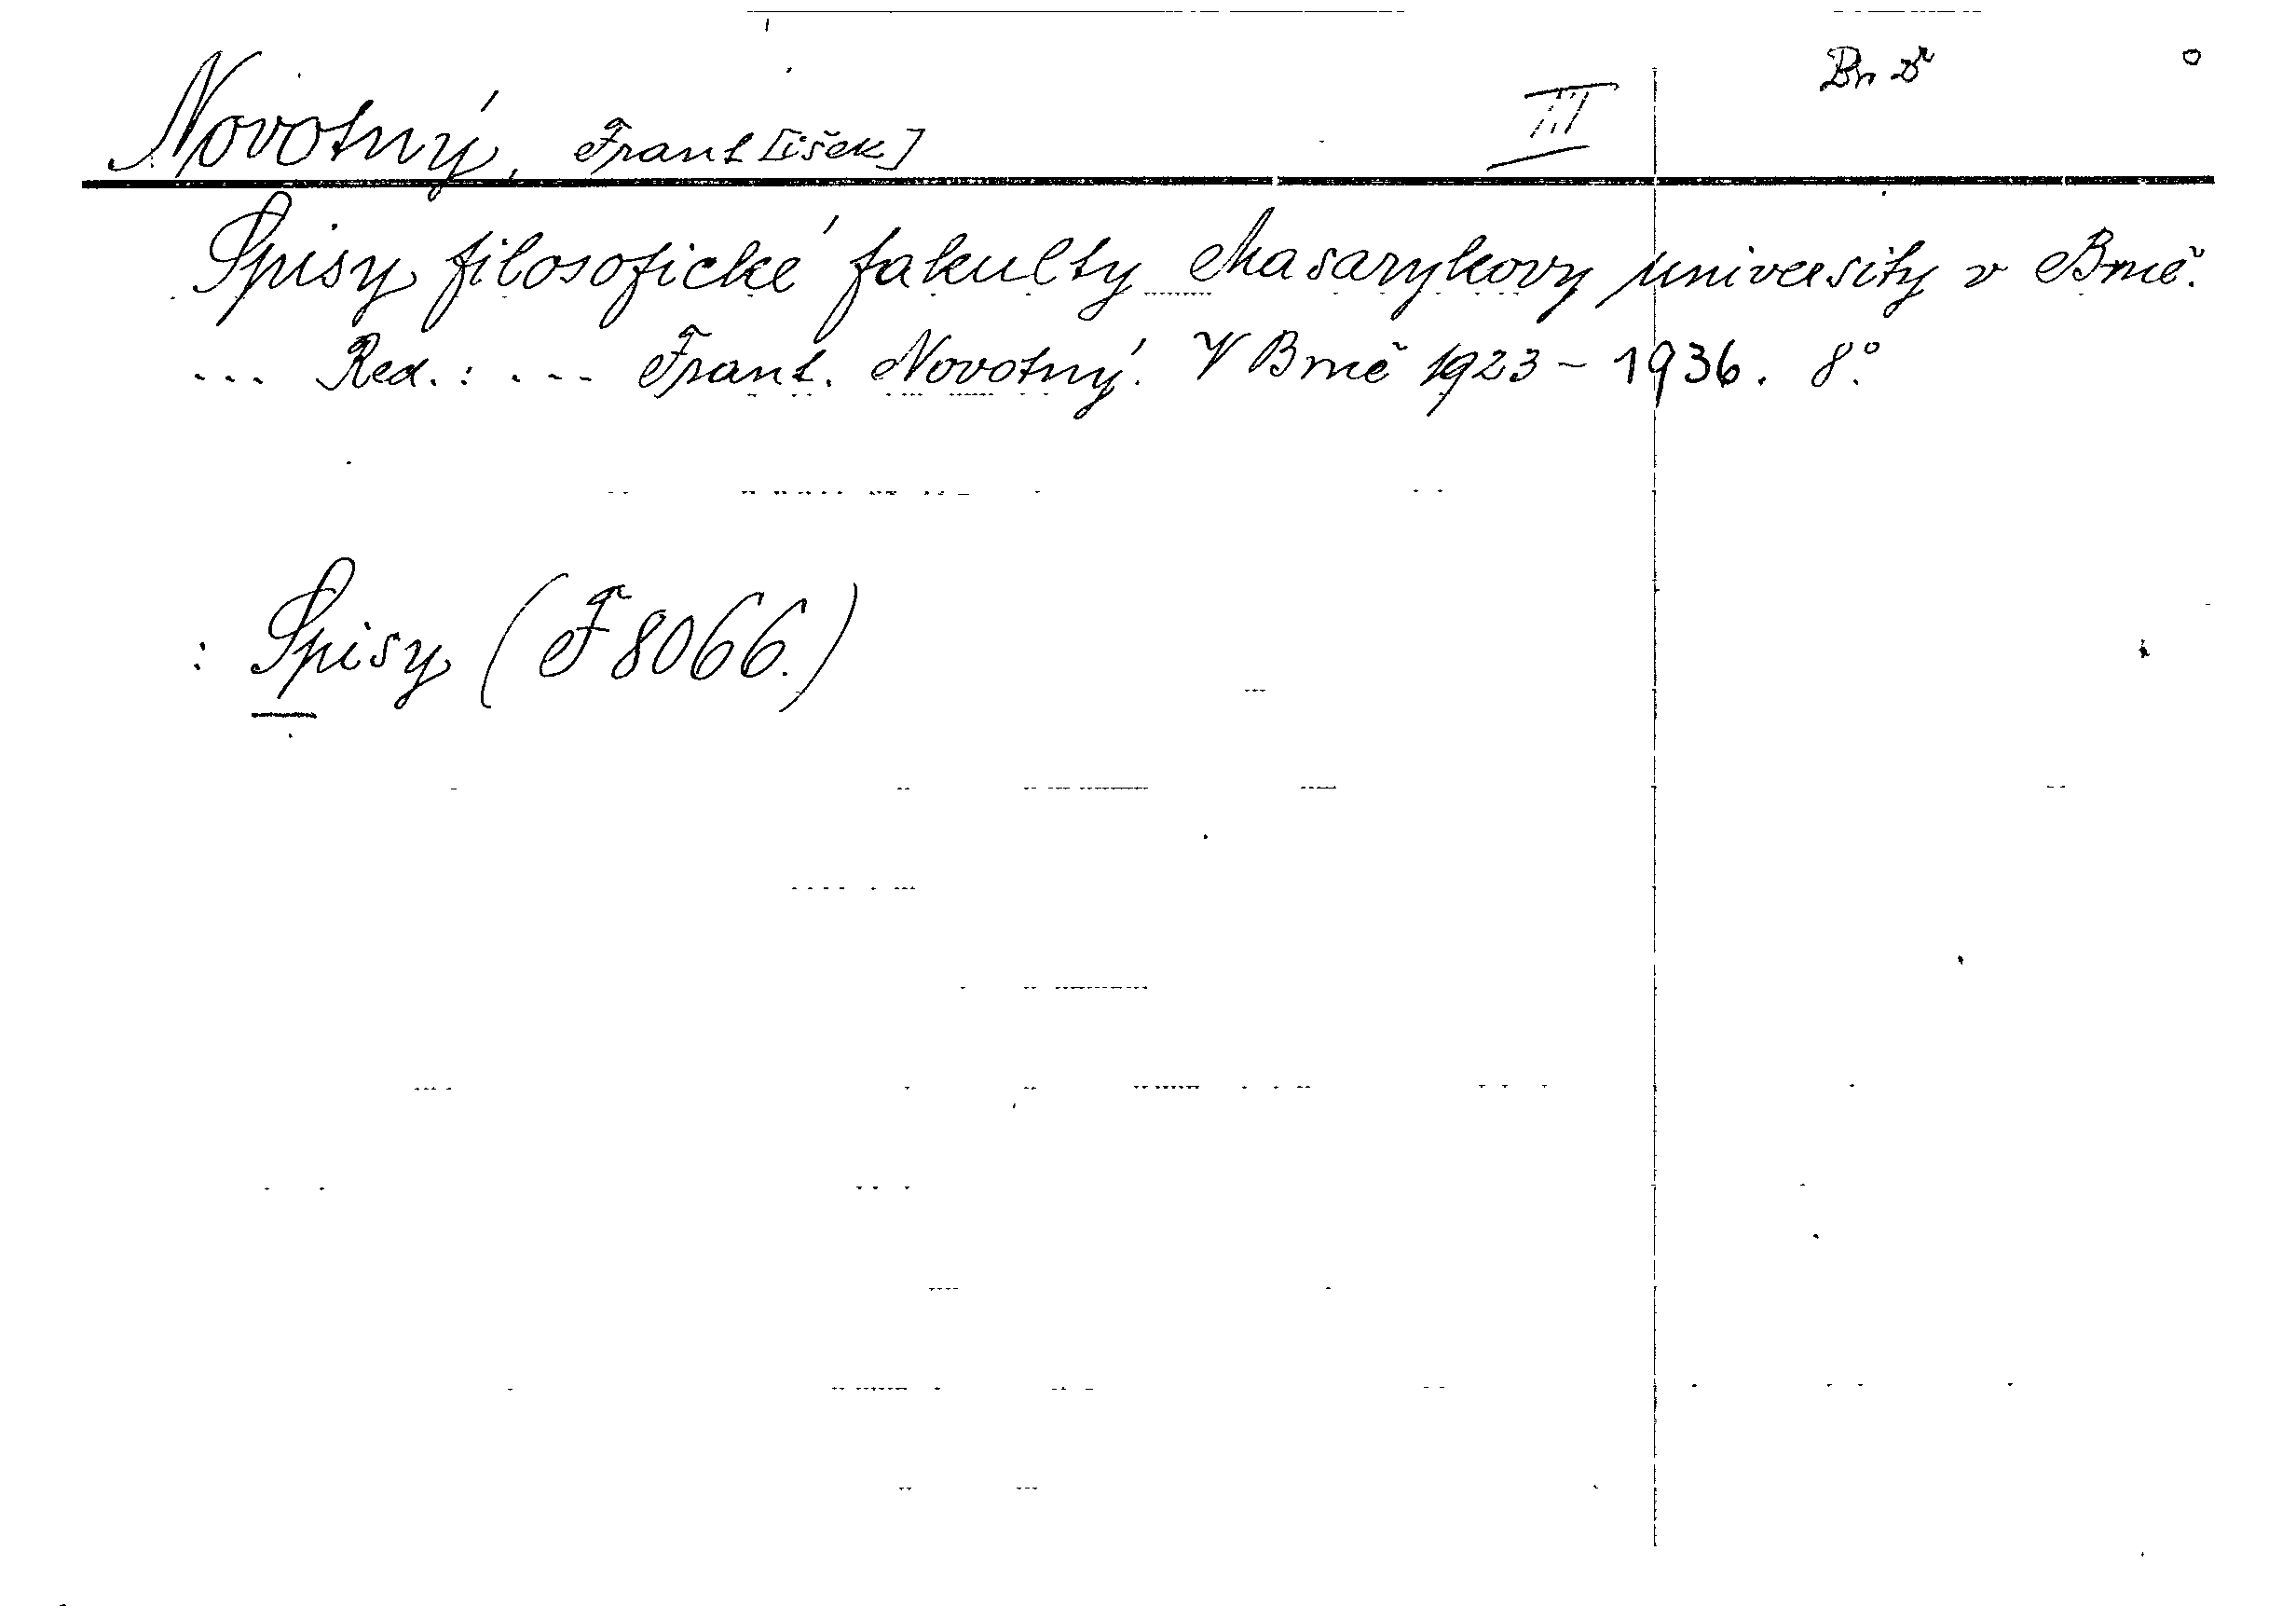 Novotný, Frant[išek] III
Spisy filosofické fakulty Masarykovy university v Brně.
... Red.: ... Frant. Novotný. V Brně 1923-1936. 8°.
: Spisy (F 8066.)